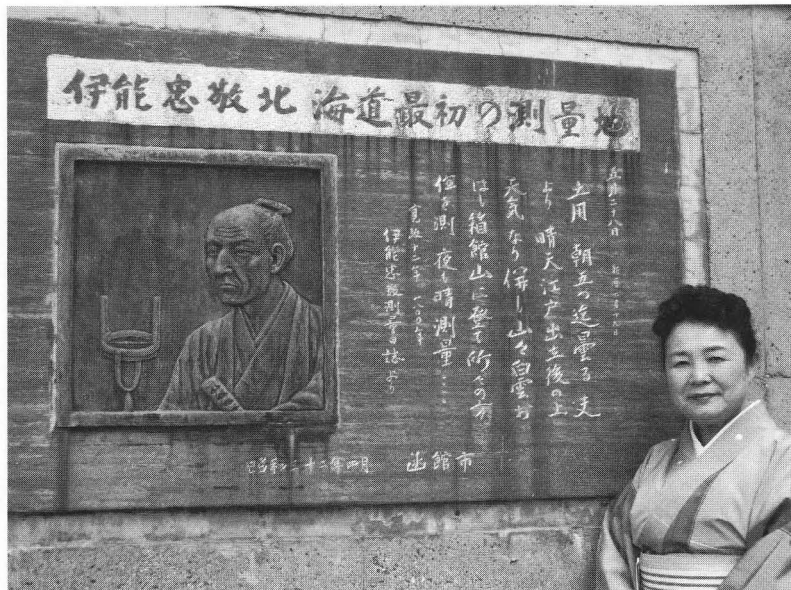 伊能忠敬北海道最初の測量地
五月二十八日 新暦七月十九日
土用 朝五つ迄曇る 夫
より 晴天江戸出立後の上
天気なり 併し山々白雲お
ほし 箱館山に登て所々の方
位を測 夜も晴測量……
寛政十二年 一八〇〇年
伊能忠敬測量日誌より
昭和三十二年四月 函館市